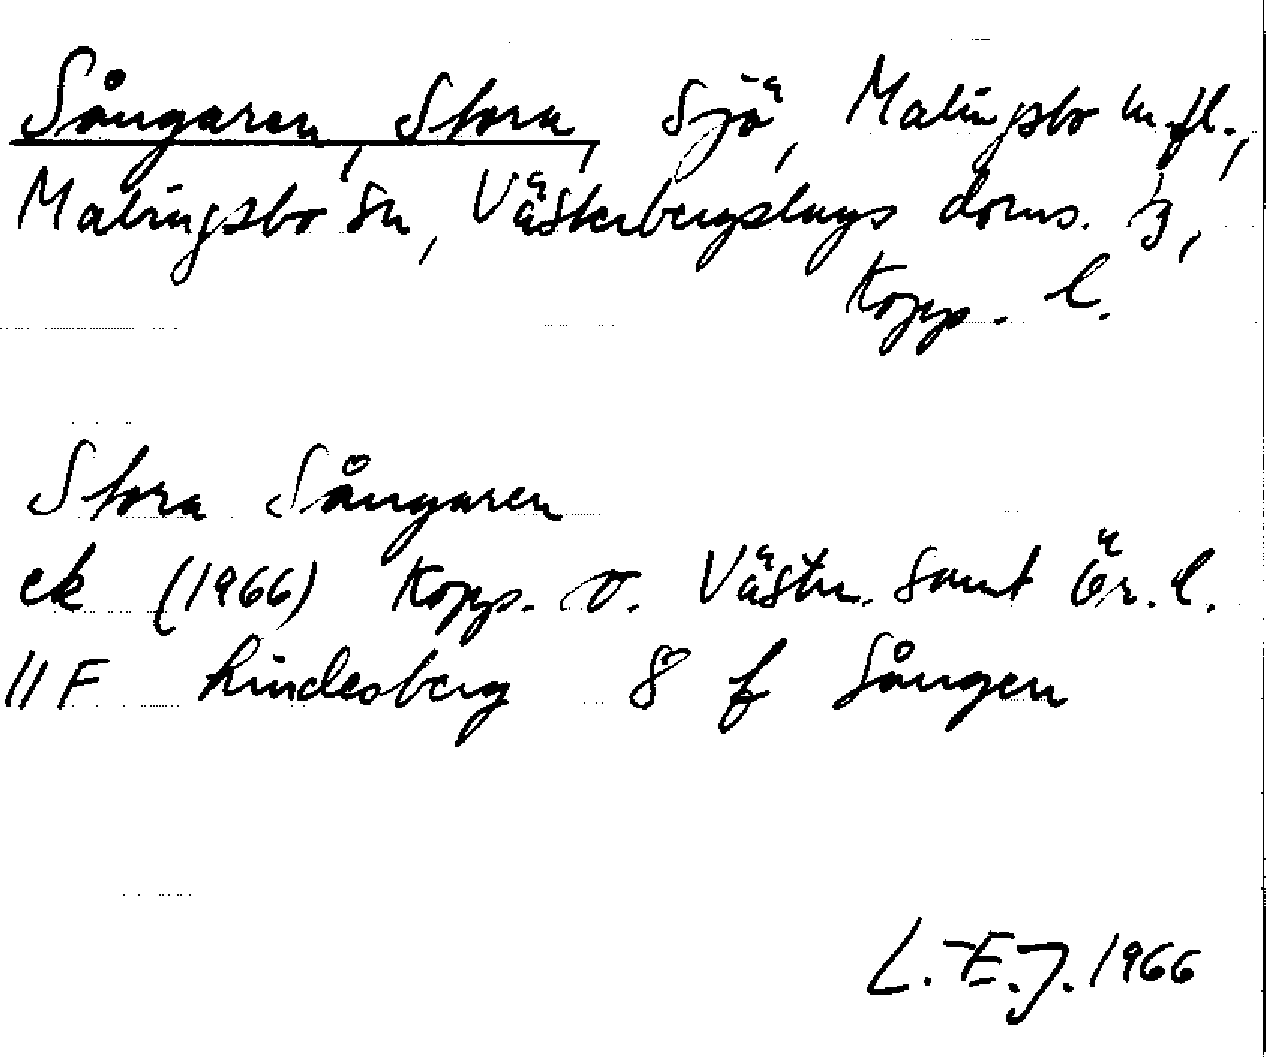 Sångaren, Stora, sjö, Malingsbo m.fl.,
Malingsbo sn, Västerbergslags doms. 3,
Kopp. l.
Stora Sångaren
ek (1966) Kopp. o. Västm. samt Ör. l.
11F Lindesberg 8 f Sången
L.-E.J. 1966